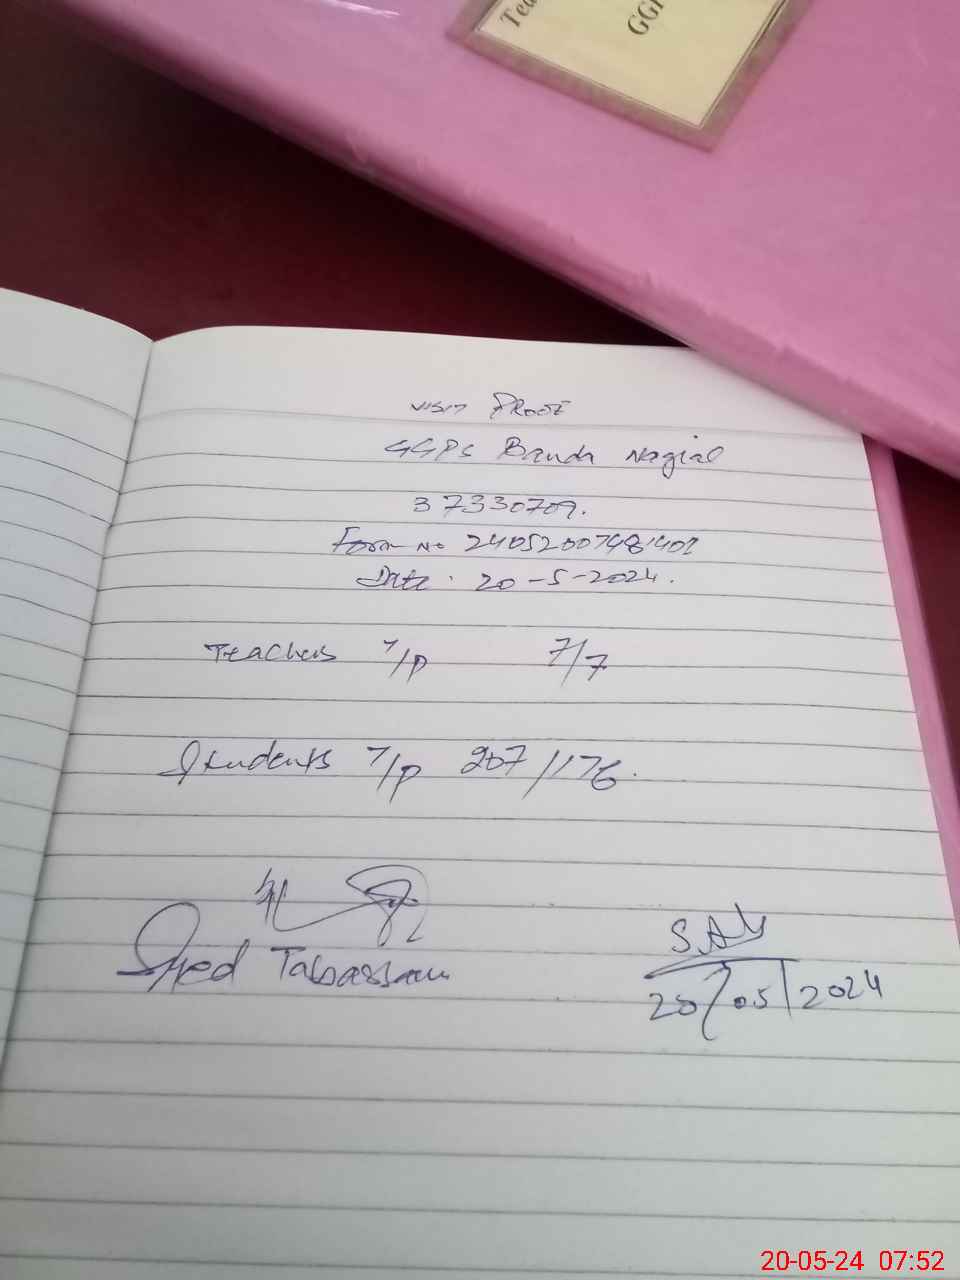 Tea
GGP
VISIT PROOF
GGPS Banda Nagial
37330709.
Form No 240520007481401
Date. 20-5-2024.
Teachers T/P 7/7
Students T/P 207/176.
Syed Tabassam
20/05/2024
20-05-24 07:52